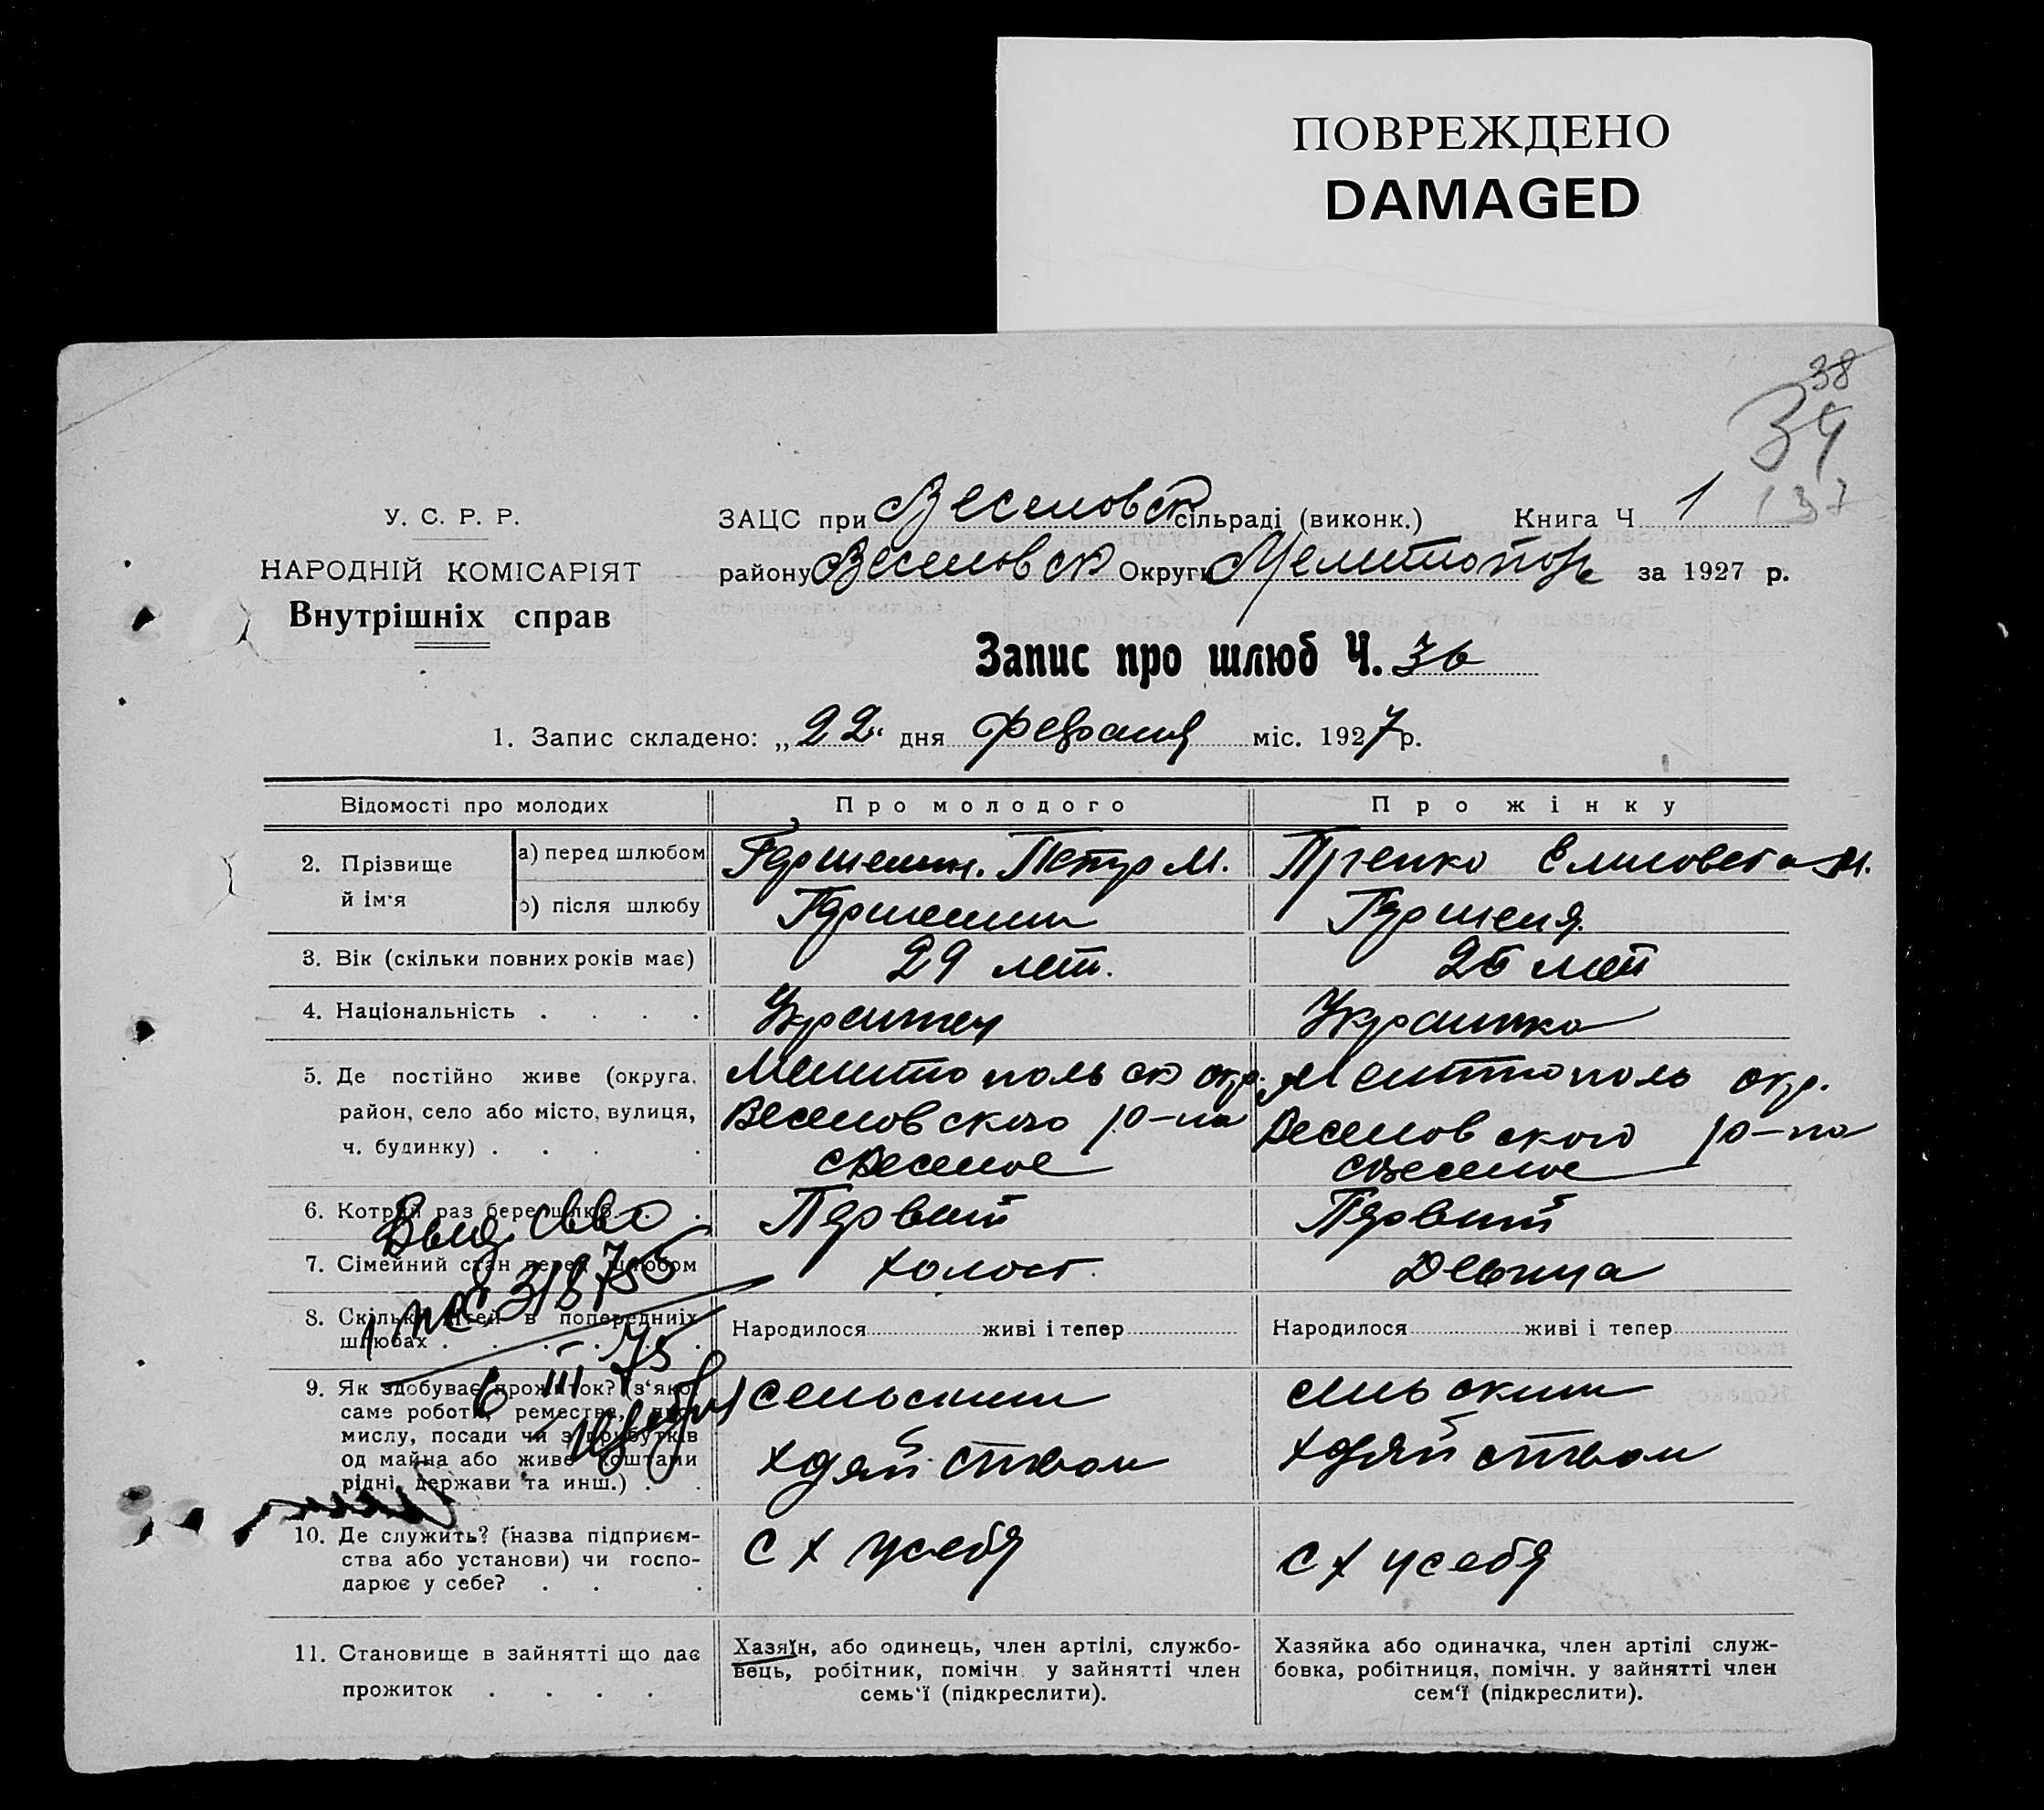 ПОВРЕЖДЕНО
DAMAGED
38
34
137
У. С. Р. Р.
НАРОДНІЙ КОМІСАРІЯТ
Внутрішніх справ
ЗАЦС при Веселовск сільраді (виконк.) Книга Ч 1
району Веселовск Округи Мелитополь за 1927 р.
Запис про шлюб Ч. 36
1. Запис складено: „22“ дня февраля міс. 1927 р.
Відомості про молодих Про молодого Про жінку
2. Прізвище й ім'я
а) перед шлюбом Петр М. Елисовета М.
б) після шлюбу
3. Вік (скільки повних років має) 29 лет. 25 лет
4. Національність . . . . Украинец Украинка
5. Де постійно живе (округа, Мелитопольск окр. Мелитополь окр.
район, село або місто, вулиця, Веселовского р-на Веселовского р-на
ч. будинку) . . . . с Веселое с Веселое
6. Котрий раз бере шлюб . . Первый Первый
7. Сімейний стан перед шлюбом холост. Девица
8. Скільки дітей в попередниіх Народилося живі і тепер Народилося живі і тепер
шлюбах . . . . . .
Выд. св-во
318755
6 III 75
9. Як здобуває прожиток? (з'якої сельским сельским
саме роботи, ремества, про-
мислу, посади чи з прибутків хозяйством хозяйством
од майна або живе коштами
рідні, держави та инш.) . .
10. Де служить? (назва підприєм- С Х у себя С Х у себя
ства або установи) чи госпо-
дарює у себе? . . .
11. Становище в зайнятті що дає Хазяїн, або одинець, член артілі, службо- Хазяйка або одиначка, член артілі служ-
прожиток . . . . вець, робітник, помічн. у зайнятті член бовка, робітниця, помічн. у зайнятті член
семь'ї (підкреслити). сем'ї (підкреслити).